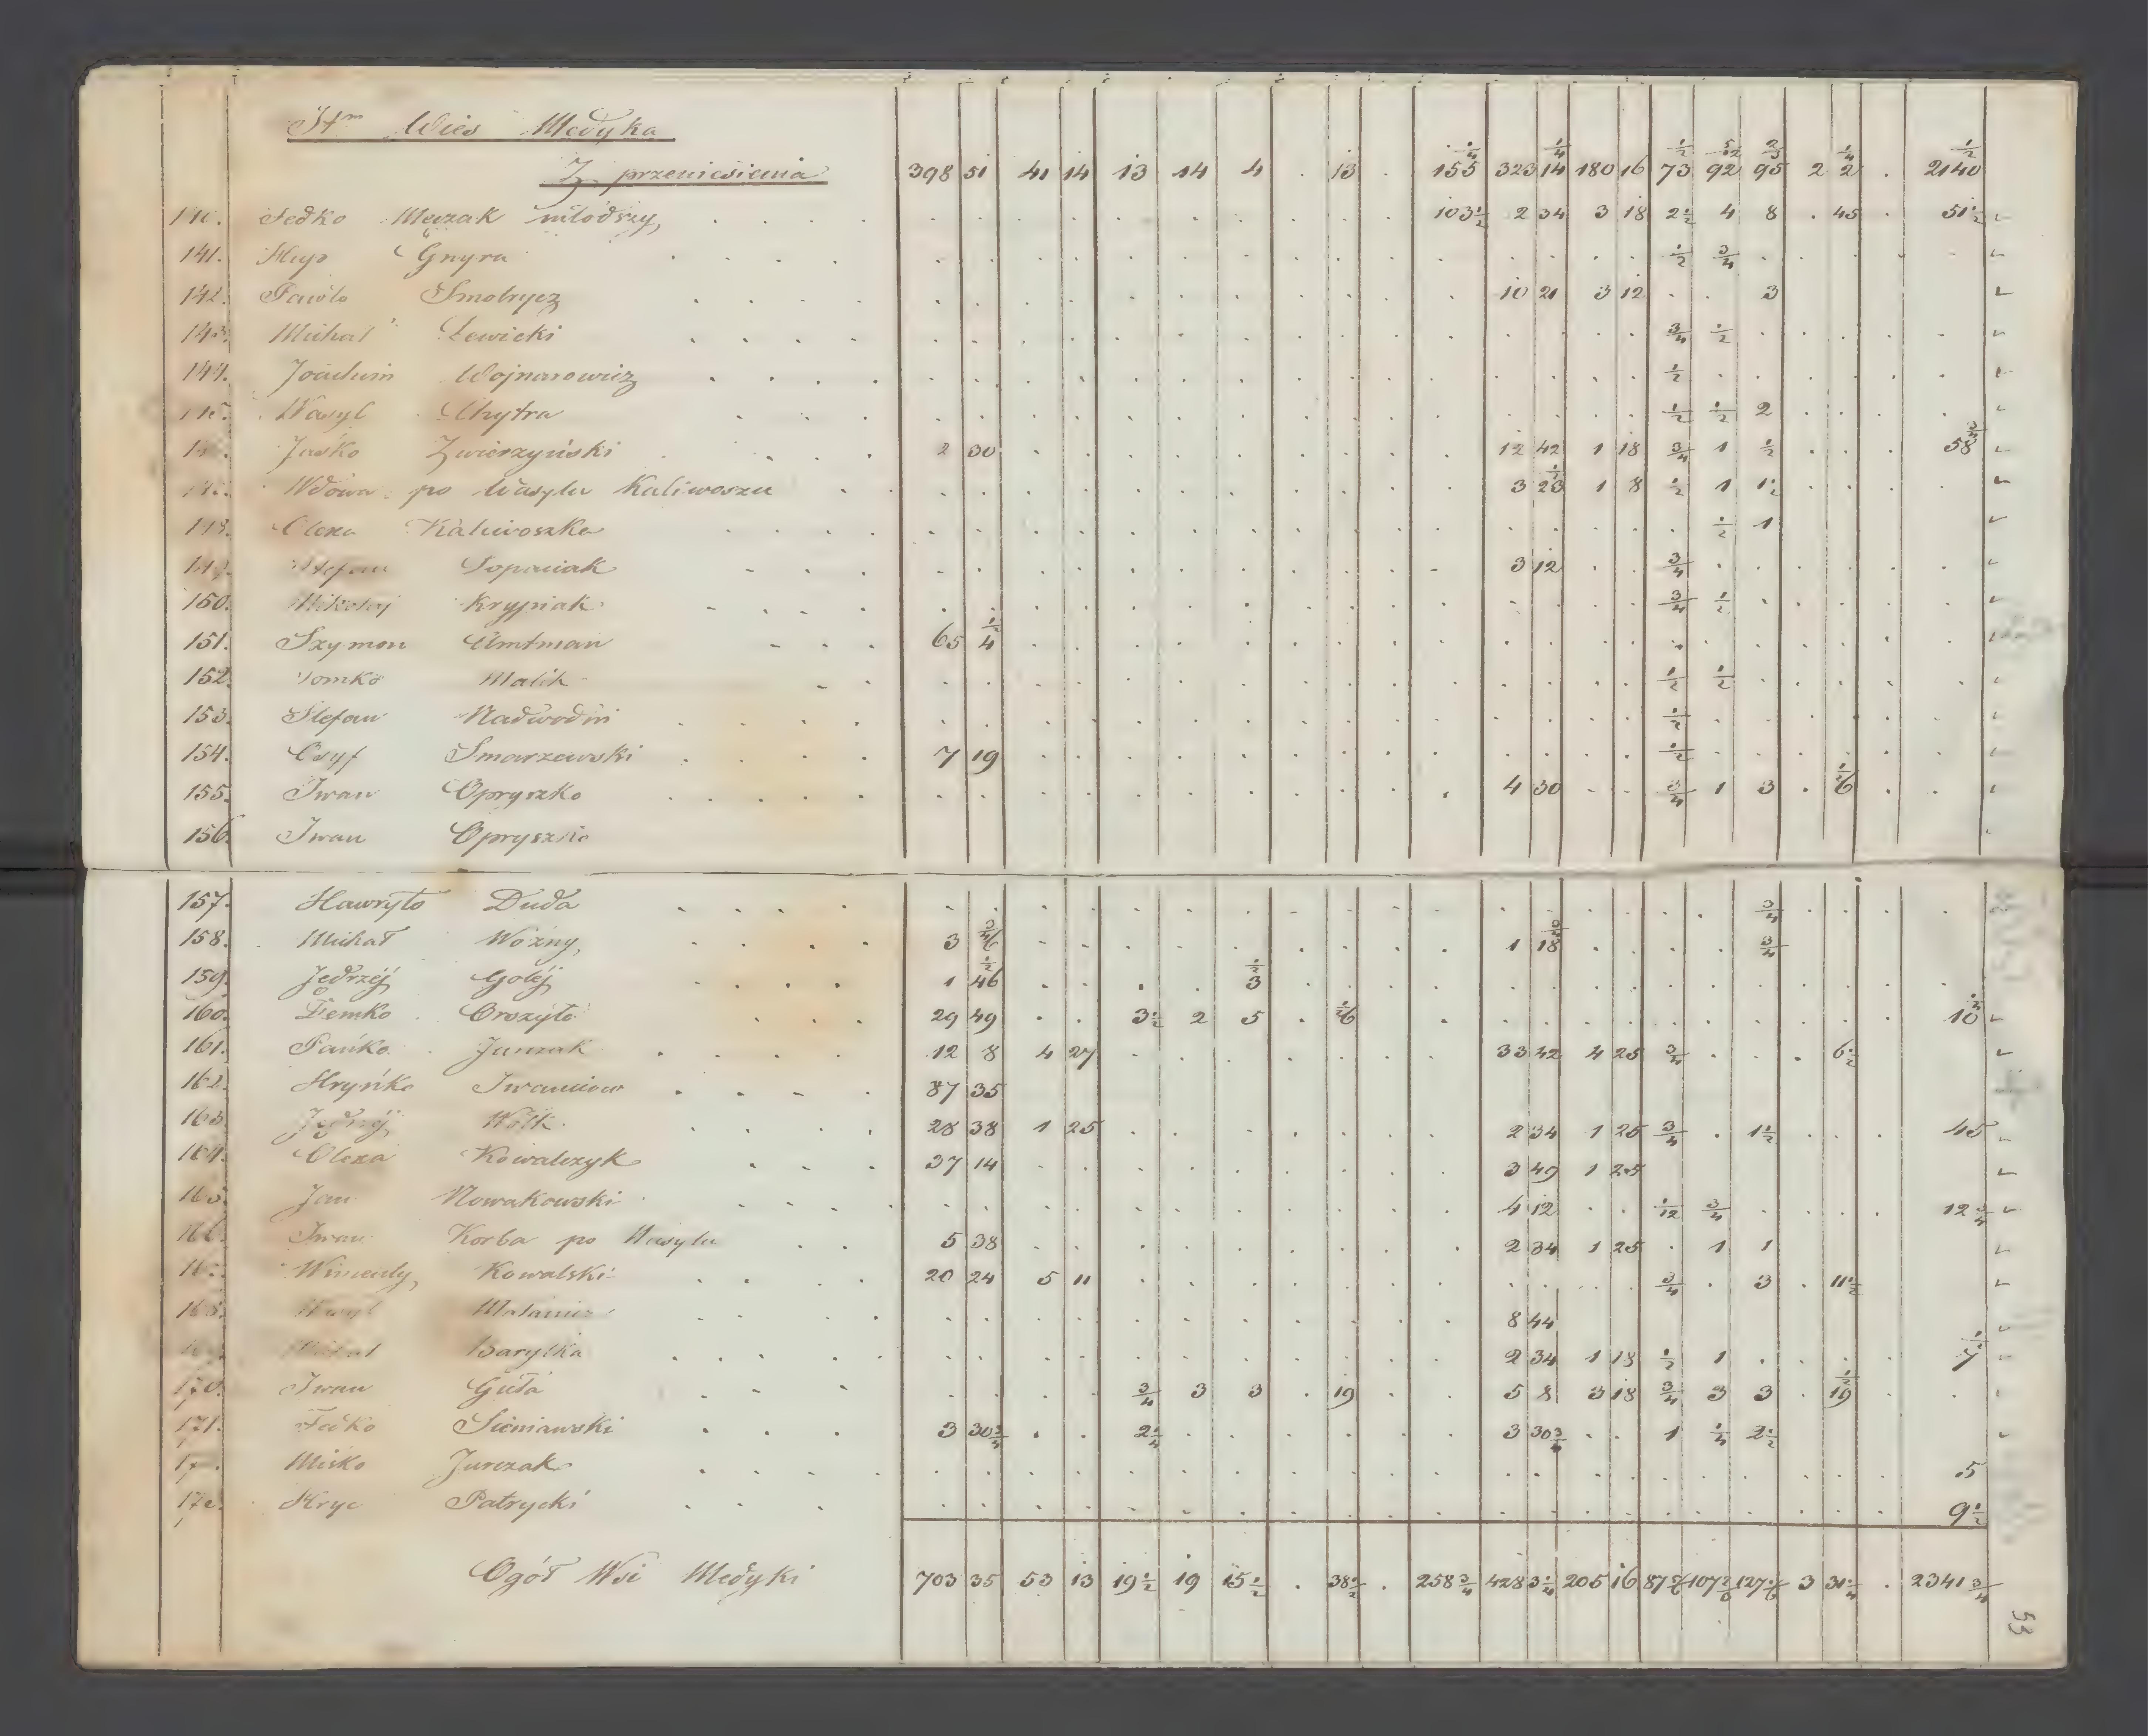 Wieś Medyka
Z przeniesienia 398 51 41 14 13 14 4 . 13 . 155 1/4 323 14 1/4 180 16 73 1/2 92 5/12 95 2/3 2 2 1/4 . 2140 1/2
Fedko młodszy 103 1/2 2 34 3 18 2 1/2 4 8 . 45 . 51 1/2
141. Gnyra 1/2 3/4
142. Pawło 10 21 3 12 . . 3
143. Michał Lewicki 3/4 1/2
144. Joachim Wojnarowicz 1/2
Wasyl Chytra 1/2 1/2 2
Jaśko Zwierzyński 2 30 12 42 1 18 3/4 1 1/2 58 3/4
Wdowa po Wasylu Kaliwoszu 3 23 1/2 1 8 1/2 1 1 1/2
Olexa Kaliwoszka 1/2 1
Stefan Łopaciak 3 12 . . 3/4
150. Mikołaj Krypiak 3/4 1/2
151. Szymon Amtman 65 4 1/2
152. Tomko Malik 1/2 1/2
153. Stefan 1/2
154. Osyf Smarzewski 7 19 1/2
155. Iwan Opryszko 4 30 . . 3/4 1 3 . 6 1/2
156. Iwan Opryszko
157. Hawryło Duda 3/4
158. Michał Woźny 3 46 3/4 1 18 3/4 3/4
159. Jędrzéj Goléj 1 46 1/2 3 1/2
160. Demko Orszyło 29 49 . . 3 1/2 2 5 . 26 10 1/4
161. Pańko Jurczak 12 8 4 27 33 42 4 25 3/4 . . . 6 1/2
162. Hryńko Iwaniow 87 35
163. Jędrzéj Wołk 28 38 1 25 2 34 1 25 3/4 . 1 1/2 . . . 45
164. Olexa Kowalczyk 37 14 3 49 1 25
165. Jan Nowakowski 4 12 . . 1/12 3/4 12 3/4
166. Iwan Korba po Wasylu 5 38 2 34 1 25 . 1 1
Wincenty Kowalski 20 24 5 11 3/4 . 3 . 11 1/2
168. 8 44
Michał Baryłka 2 34 1 18 1/2 1
170. Iwan Guła 3/4 3 3 . 19 . . 5 8 3 18 3/4 3 3 . 19 1/2
171. Fedko Sieniawski 3 30 3/4 . . 2 1/4 3 30 3/4 . . 1 1/4 2 1/2
Misko Jurczak 5
Hryc Patrycki 9 1/2
Ogół Wsi Medyki 703 35 53 13 19 1/2 19 15 1/2 . 38 1/2 . 258 3/4 428 3 1/4 205 16 87 5/6 107 2/3 127 1/6 3 31 1/4 . 2341 3/4
53